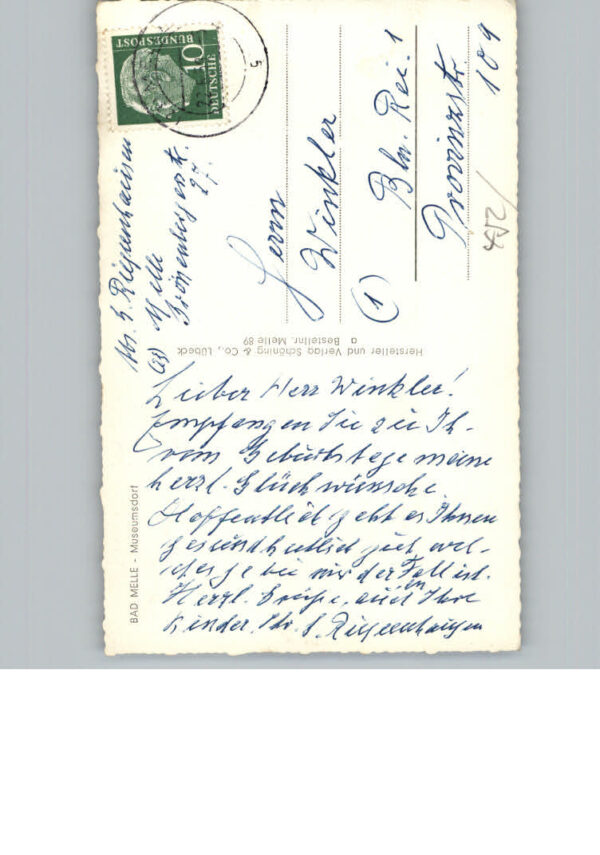 BAD MELLE - Museumsdorf
Abs. H. Riepenhausen
(23) Melle
27.
Lieber Herr Winkler!
Empfangen Sie zu Ih-
rem Geburtstage meine
herzl. Glückwünsche
Hoffentlich geht es Ihnen
gesundheitlich gut, wel-
ches je bei mir der Fall ist.
Herzl. Grüße, auch an Ihre
Kinder, Ihr H. Riepenhausen
Hersteller und Verlag Schöning & Co., Lübeck
a Bestellnr. Melle 89
DEUTSCHE
BUNDESPOST
10
Herrn
Winkler
(1) Bln. Rei. 1
Provinzstr.
109